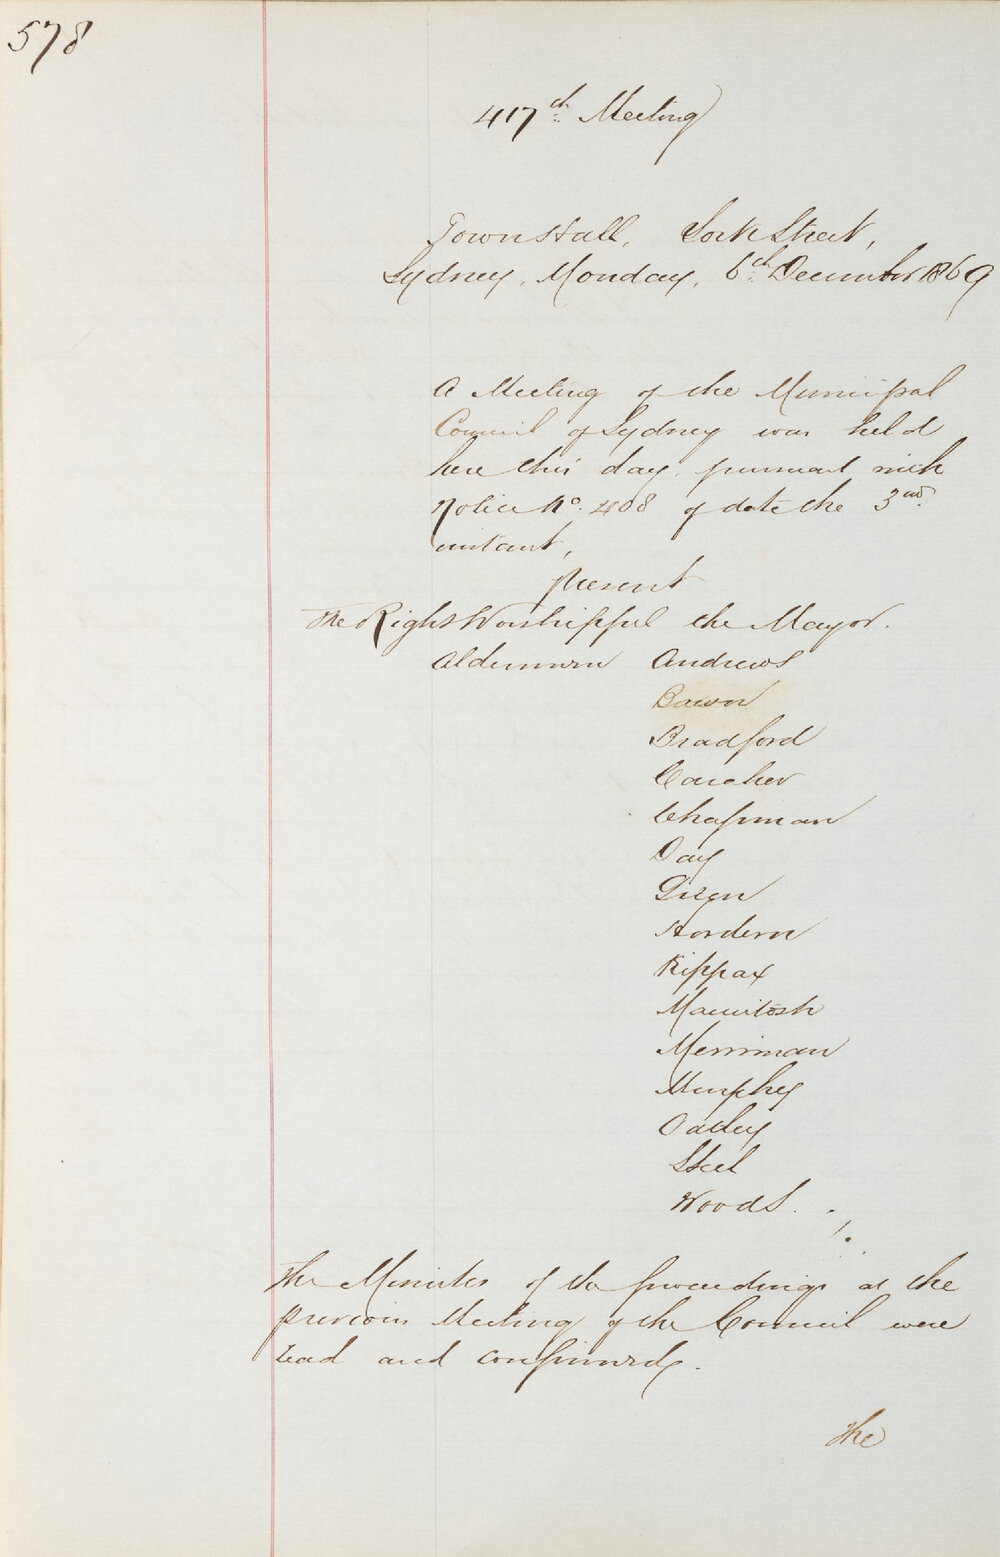 578
417th Meeting
Town Hall, York Street,
Sydney, Monday, 6th December 1869
A Meeting of the Municipal
Council of Sydney was held
here this day pursuant with
Notice No. 408 of date the 3rd
instant,
present
The Right Worshipful the Mayor.
Aldermen Andrews
Bradford
Caraher
Chapman
Day
Green
Hordern
Kippax
Macintosh
Merriman
Murphy
Oatley
Steel
Woods.
The Minutes of the proceedings at the
previous Meeting of the Council were
read and confirmed.
The